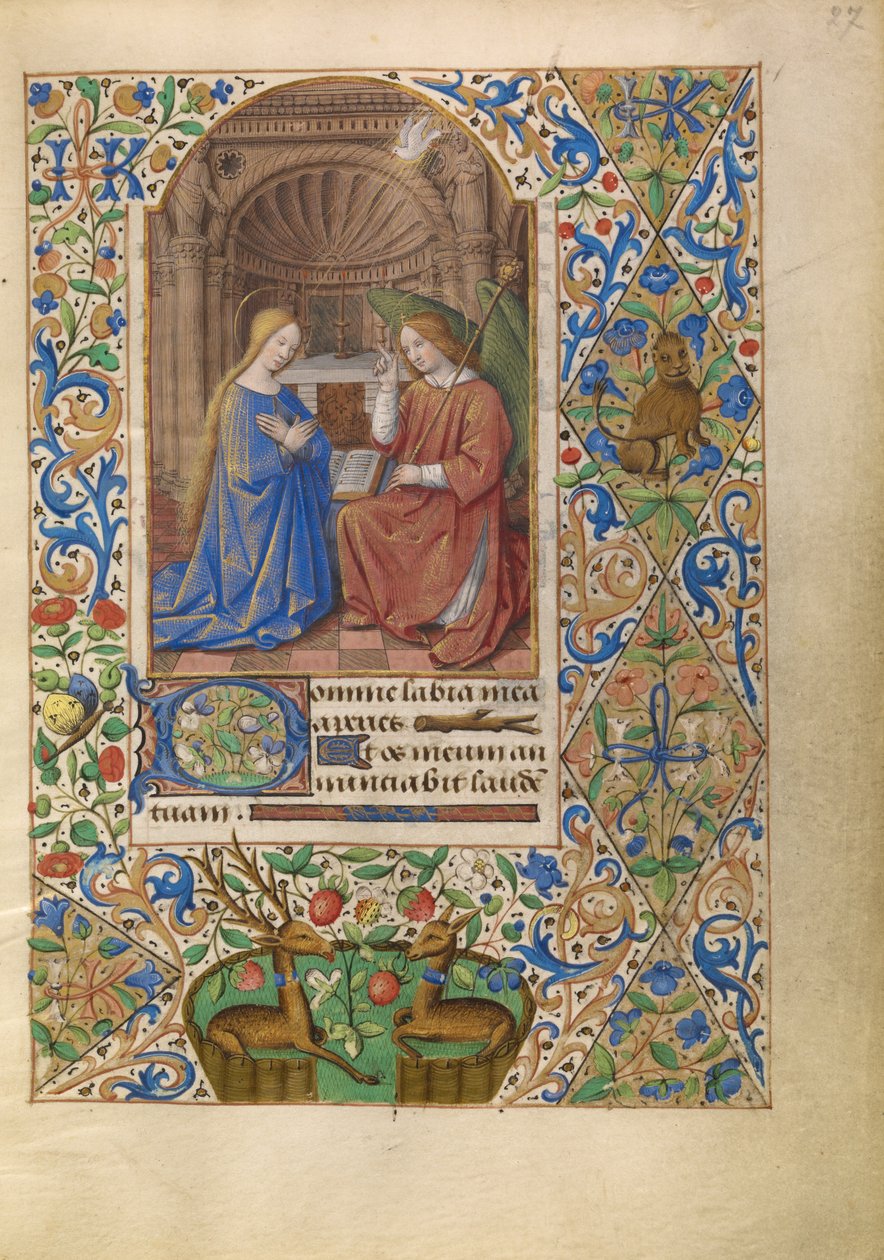 27
I K
I K
Domine labia mea
aperies
Et os meum an
nunciabit laudē
tuam .